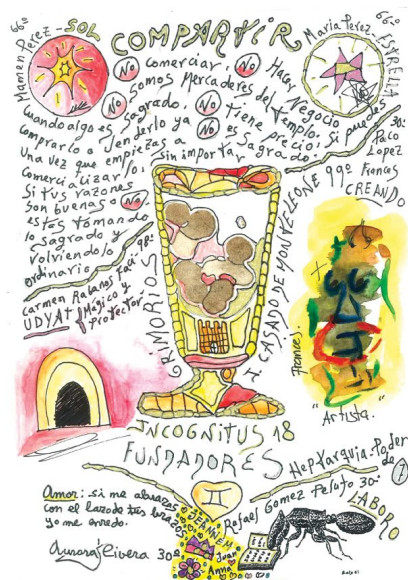 66°
Mamen Perez - SOL
COMPARTIR
María Perez - ESTRELLA
66°
No Comerciar, No Hacer Negocio
No Somos Mercaderes del Templo.
Cuando algo es Sagrado. No tiene precio! Si puedes
Comprarlo o Venderlo ya No es Sagrado!
una vez que empiezas a
Comercializarlo! sin importar
Si tus razones
son buenas o No
estas tomando
lo sagrado y
volviendolo
ordinario
30°
Paco
Lopez
Frances
CREANDO
Carmen Rabanos
98°
UDYAT Mágico y
Protector
GRIMORIOS
I CASADO DE MONTELEONE 99°
Frances).
"Artista."
INCOGNITUS 18
FUNDADORES
HepTarquia-Poder
de 7
II
Amor: si me abrazas
con el lazo de tus brazos
yo me enredo.
Aurora Rivera 30°
JEANNEM
Juan
Anna
Rafael Gomez Peluto 30°
LABORO